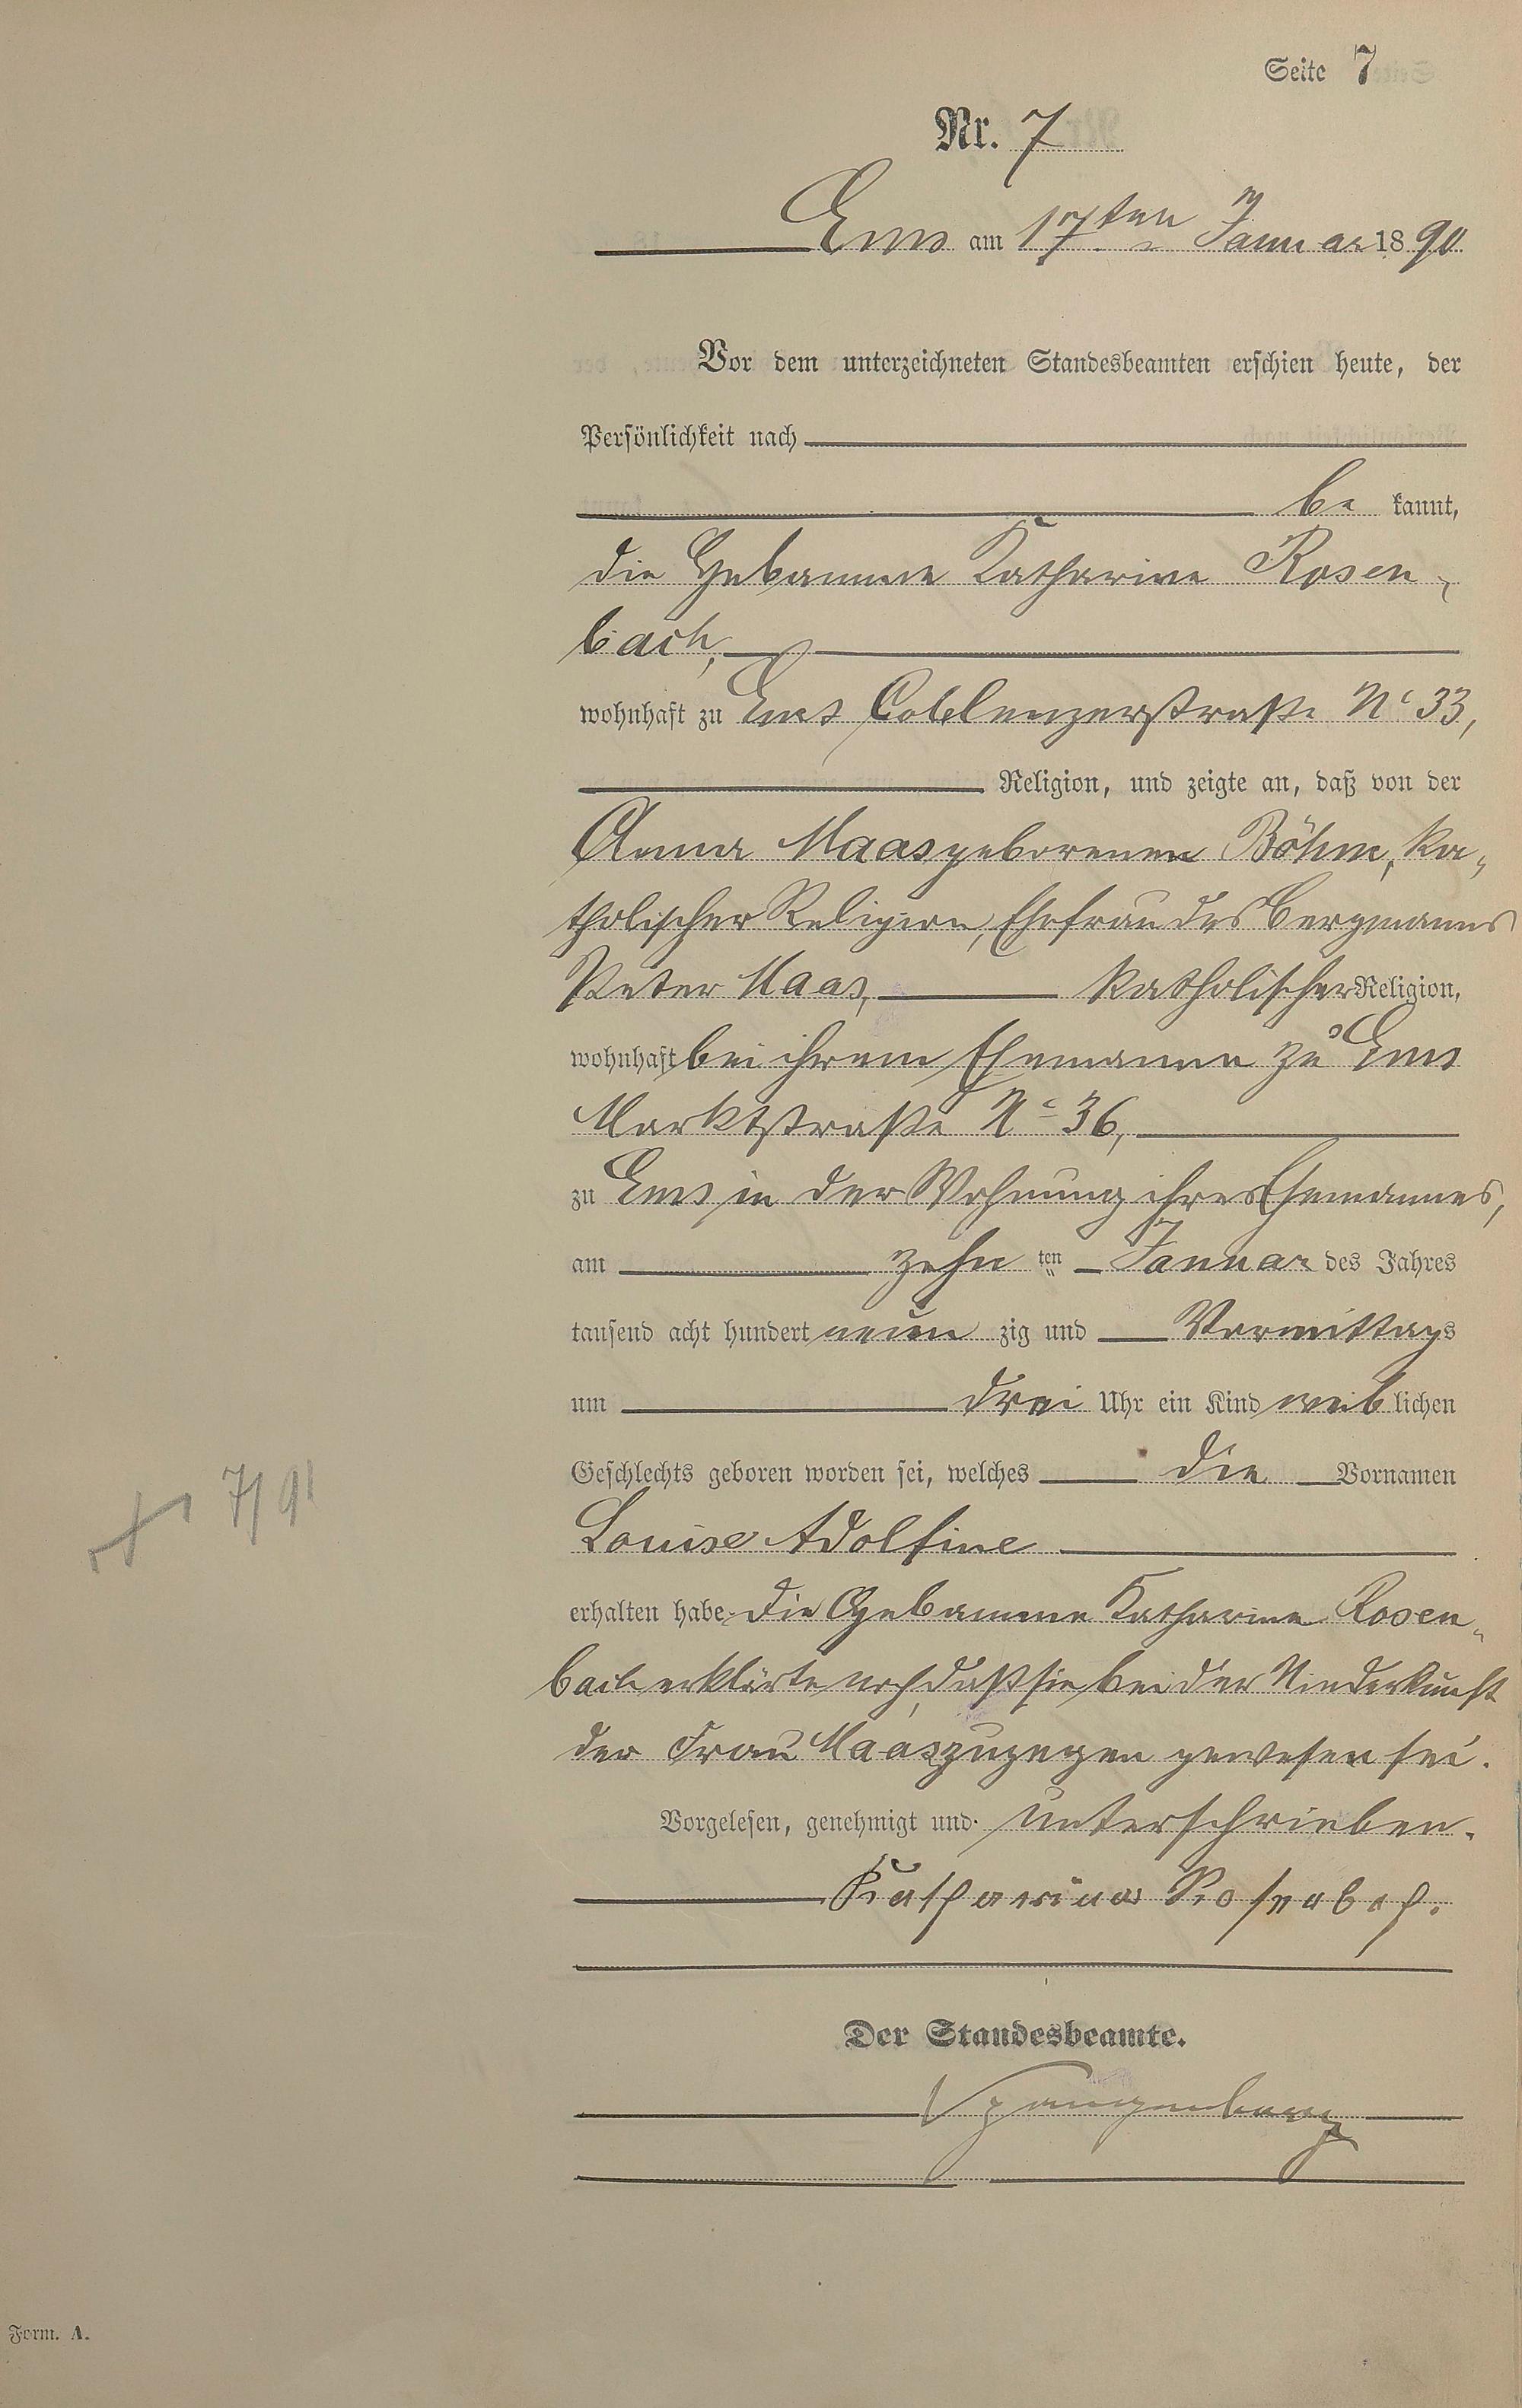 Seite 7
Nr. 7
Ems am 17ten Januar 1890
Vor dem unterzeichneten Standesbeamten erschien heute, der
Persönlichkeit nach
be kannt,
die Hebamme Katharine Rosen-
bach,
wohnhaft zu Ems Coblenzerstraße No 33,
Religion, und zeigte an, daß von der
Anna Maas geborenen Böhm, ka-
tholischer Religion, Ehefrau des Bergmanns
Peter Maas, katholischer Religion,
wohnhaft bei ihrem Ehemanne zu Ems
Marktstraße No 36,
zu Ems in der Wohnung ihres Ehemannes,
am zehn ten Januar des Jahres
tausend acht hundert neun zig und Vormittags
um drei Uhr ein Kind weib lichen
Geschlechts geboren worden sei, welches die Vornamen
Louise Adolfine
erhalten habe. Die Hebamme Katharine Rosen-
bach erklärte noch, daß sie bei der Niederkunft
der Frau Maas zugegen gewesen sei.
Vorgelesen, genehmigt und unterschrieben.
Katharina Rosenbach.
Der Standesbeamte.
Spangenberg
7/91
Form. A.